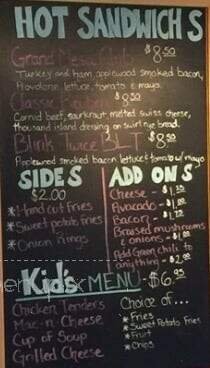 HOT SANDWICH S
Grand Mesa Club $8.50
Turkey and ham, applewood smoked bacon,
Havarti, lettuce, tomato & mayo.
Classic Reuben $8.50
Corned beef, saurkraut, melted swiss cheese,
thousand island dressing on swirl rye bread.
Blink Twice BLT $8.50
Applewood smoked bacon lettuce & tomato w/ mayo
SIDES
$2.00
*Hand Cut Fries
*Sweet potato Fries
*Onion Rings
ADD ONS
Cheese - $1.50
Avocado -
Bacon -
Braised mushrooms
& onions -
Add Green chili to
anything - $2.00
Kid's MENU - $6.95
Chicken Tenders
Mac-n-Cheese
Cup of Soup
Grilled Cheese
Choice of...
*Fries
*Sweet Potato Fries
*Fruit
*Chips